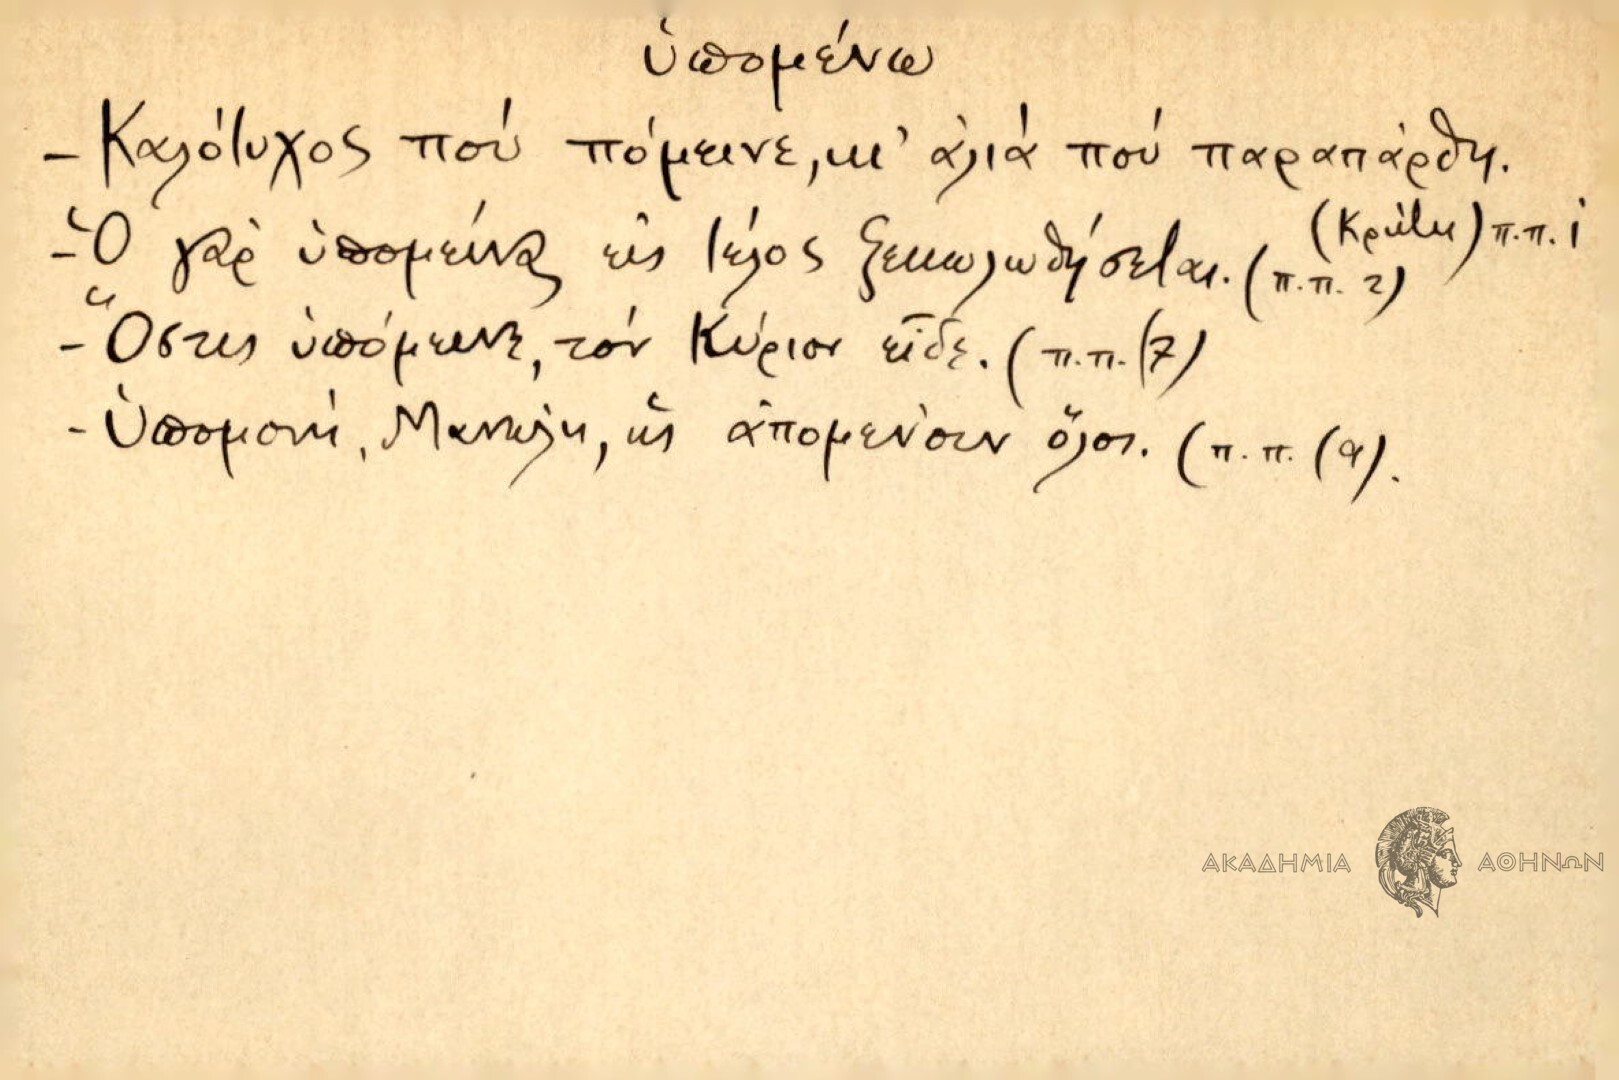 ὑπομένω
- Καλότυχος πού πόμεινε, κι' ἀλιά πού παραπάρθη.
(Κρήτη) π.π. i
- Ὁ γὰρ ὑπομείνας εἰς τέλος ξεκωλωθήσεται. (π.π. 2)
- Ὅστις ὑπόμεινε, τόν Κύριον εἶδε. (π.π. (7)
- Ὑπομονή, Μανώλη, κι ἀπομένουν ὅλοι. (π.π. (9).
ΑΚΑΔΗΜΙΑ ΑΘΗΝΩΝ